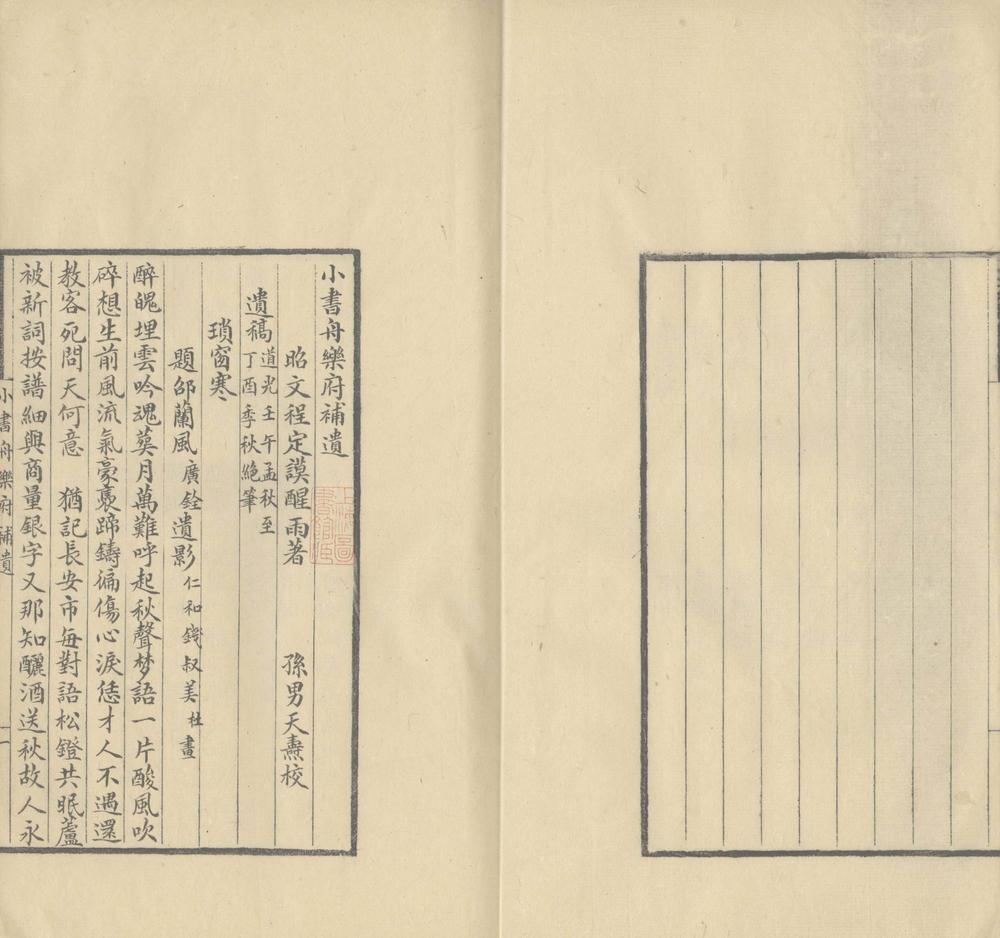 小書舟樂府補遺
昭文程定謨醒雨著　孫男天燾校
遺稿道光壬午孟秋至
丁酉季秋絶筆
瑣窗寒
題邵蘭風廣銓遺影仁和錢叔美杜畫
醉魄埋雲吟魂葬月萬難呼起秋聲梦語一片酸風吹
碎想生前風流氣豪褭蹄鑄徧傷心淚恁才人不遇還
教客死問天何意　猶記長安市每對語松鐙共眠蘆
被新詞按譜細與商量銀字又那知釃酒送秋故人永
小書舟樂府補遺
一
上海圖
書館藏